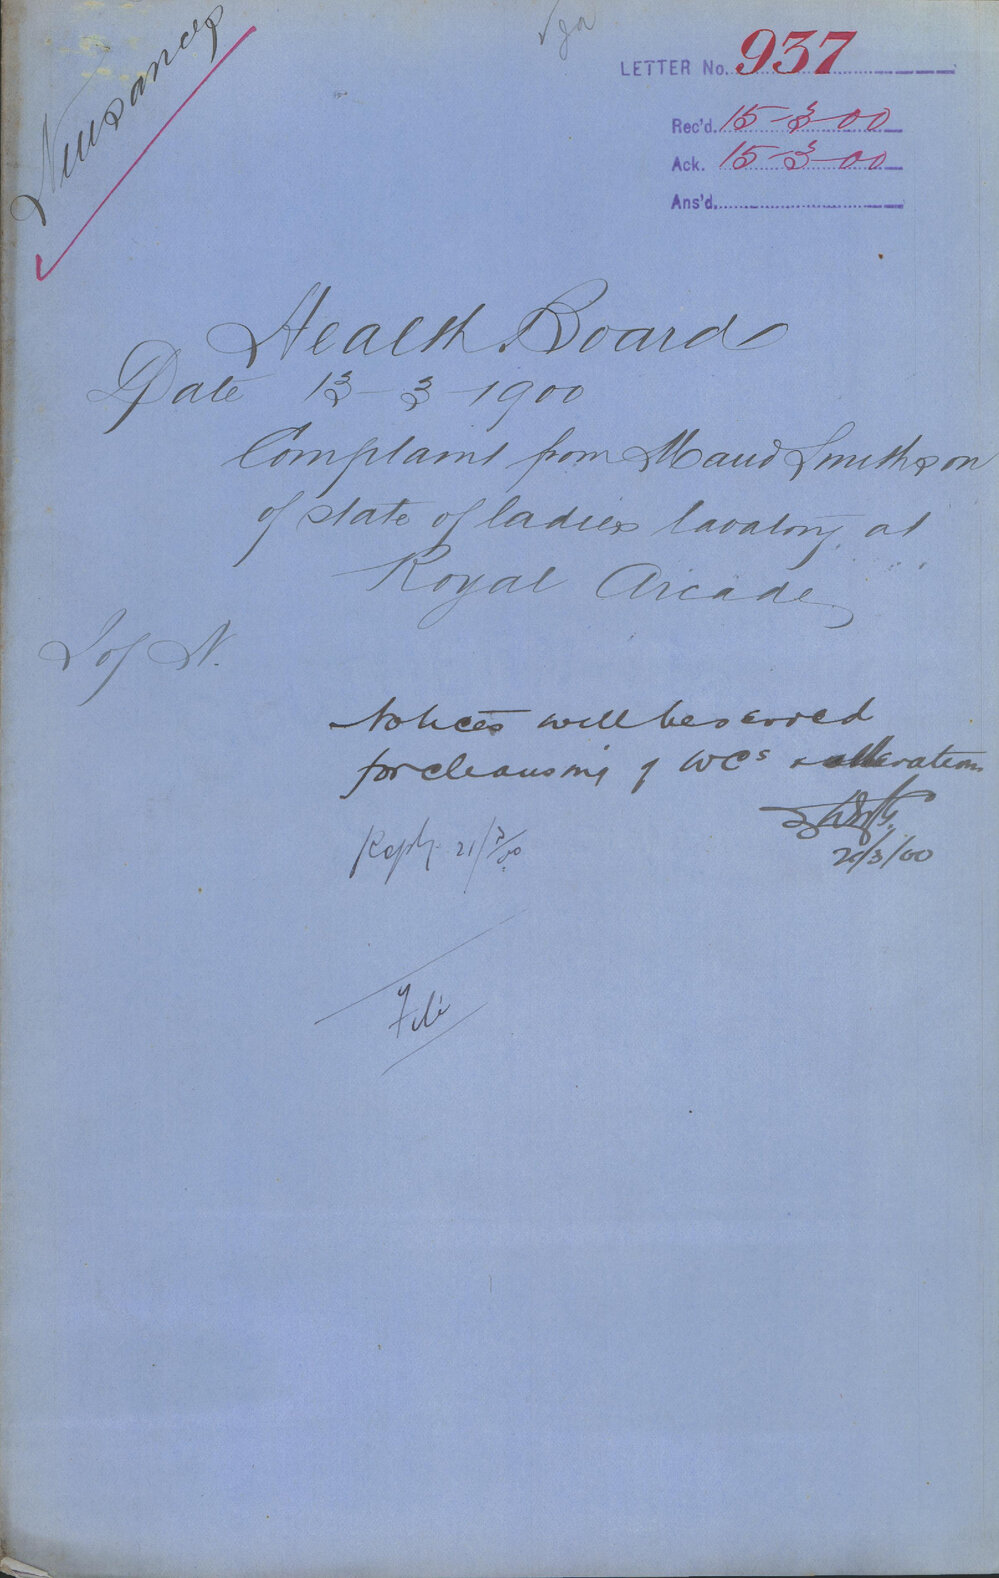 Nuisances
LETTER No. 937
Rec'd. 15-3-00
Ack. 15-3-00
Ans'd.
Health Board
Date 13-3-1900
Complaint from Maud Smithson
of state of ladies lavatory at
Royal Arcade
I of N.
Notices will be served
for cleansing of WCs & alterations
20/3/00
Reply 21/3/00
File